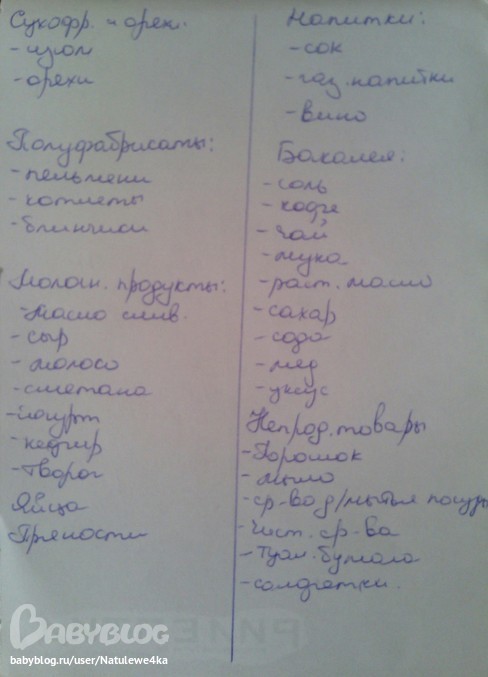 Сухофр. и орех.
- изюм
- орехи
Полуфабрикаты:
- пельмени
- котлеты
- блинчики
Молочн. продукты:
- Масло слив.
- сыр
- молоко
- сметана
- йогурт
- кефир
- Творог
Яйца
Пряности
Напитки:
- сок
- газ. напитки
- вино
Бакалея:
- соль
- кофе
- чай
- мука
- раст. масло
- сахар
- сода
- мед
- уксус
Непрод. товары
- Порошок
- мыло
- ср-во д/мытья посуды
- Чист. ср-ва
- Туал. бумага
- салфетки.
BABYBLOG
babyblog.ru/user/Natulewe4ka